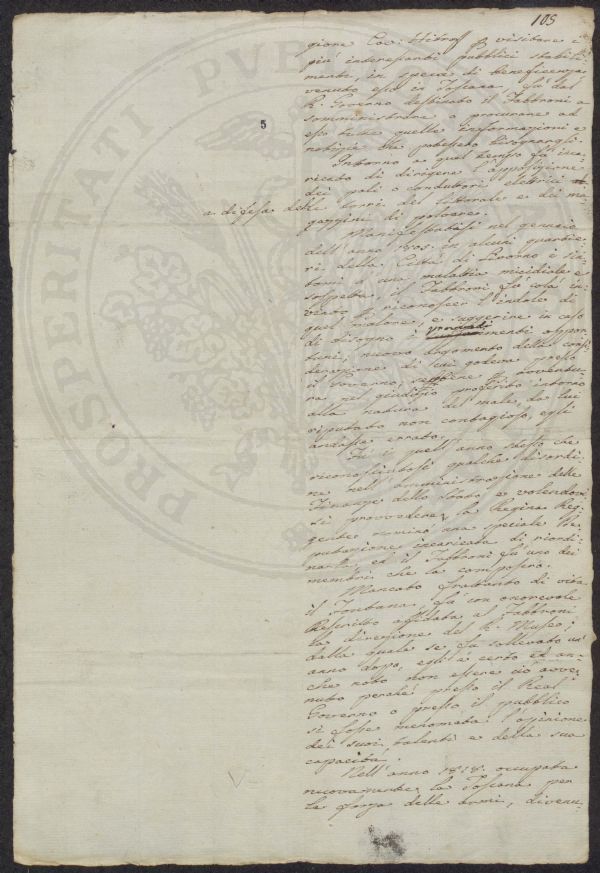 105
5
PROSPERITATI PUBLI
gione per visitare i
più interessanti pubblici stabili-
menti, in specie di beneficenza
venuto essa in Toscana, fu dal
R. Governo destinato il Fabbroni a
somministrare o procurare ad
essa tutte quelle informazioni e
notizie che potessero bisognargli.
Intorno a quel tempo fu inca-
ricato di dirigere l'apposizione
dei pali o conduttori elettrici
a difesa delle torri del littorale e dei ma-
gazzini di polvere.
Manifestatasi nel gennaio
dell'anno in alcuni quartie-
ri della Città di Livorno i sin-
tomi d'una malattia micidiale e
sospetta, il Fabbroni fu colà in-
viato a riconoscer l'indole di
quel malore, e suggerire in caso
di bisogno i provvedimenti oppor-
tuni, nuovo argomento della consi-
derazione di cui godeva presso
il Governo, sebbene per avventu-
ra nel giudizio proferito intorno
alla natura del male, da lui
riputato non contagioso, egli
andasse errato.
Fu in quell'anno stesso che
riconosciutosi qualche disordi-
ne nell'amministrazione delle
Finanze dello Stato e volendovi
si provvedere, la Regina Reg-
gente nominò una speciale De-
putazione incaricata di riordi-
narla, ed il Fabbroni fu uno dei
membri che la composero.
Mancato frattanto di vita
il Fontana, fu con onorevole
Rescritto affidata al Fabbroni
la direzione del R. Museo;
dalla quale se fu sollevato un
anno dopo, egli è certo ed an-
che noto non essere ciò avve-
nuto perché presso il Real
Governo o presso il pubblico
si fosse menomata l'opinione
dei suoi talenti e della sua
capacità.
Nell'anno occupata
nuovamente la Toscana per
la forza delle armi, divenu-